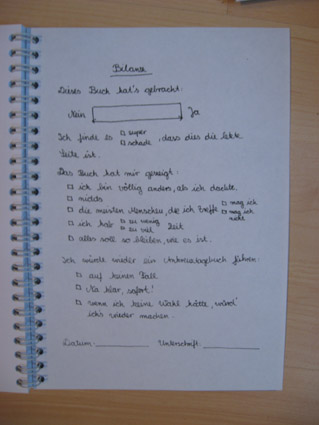 Bilanz
Dieses Buch hat's gebracht:
Nein Ja
Ich finde es □ super □ schade, dass dies die letzte
Seite ist.
Das Buch hat mir gezeigt:
□ ich bin völlig anders, als ich dachte
□ nichts
□ die meisten Menschen, die ich treffe □ mag ich □ mag ich nicht
□ ich hab □ zu wenig □ zu viel Zeit
□ alles soll so bleiben, wie es ist.
Ich würde wieder ein tagebuch führen:
□ auf keinen Fall
□ Na klar, sofort!
□ wenn ich keine Wahl hätte, würd'
ich's wieder machen.
Datum: Unterschrift: